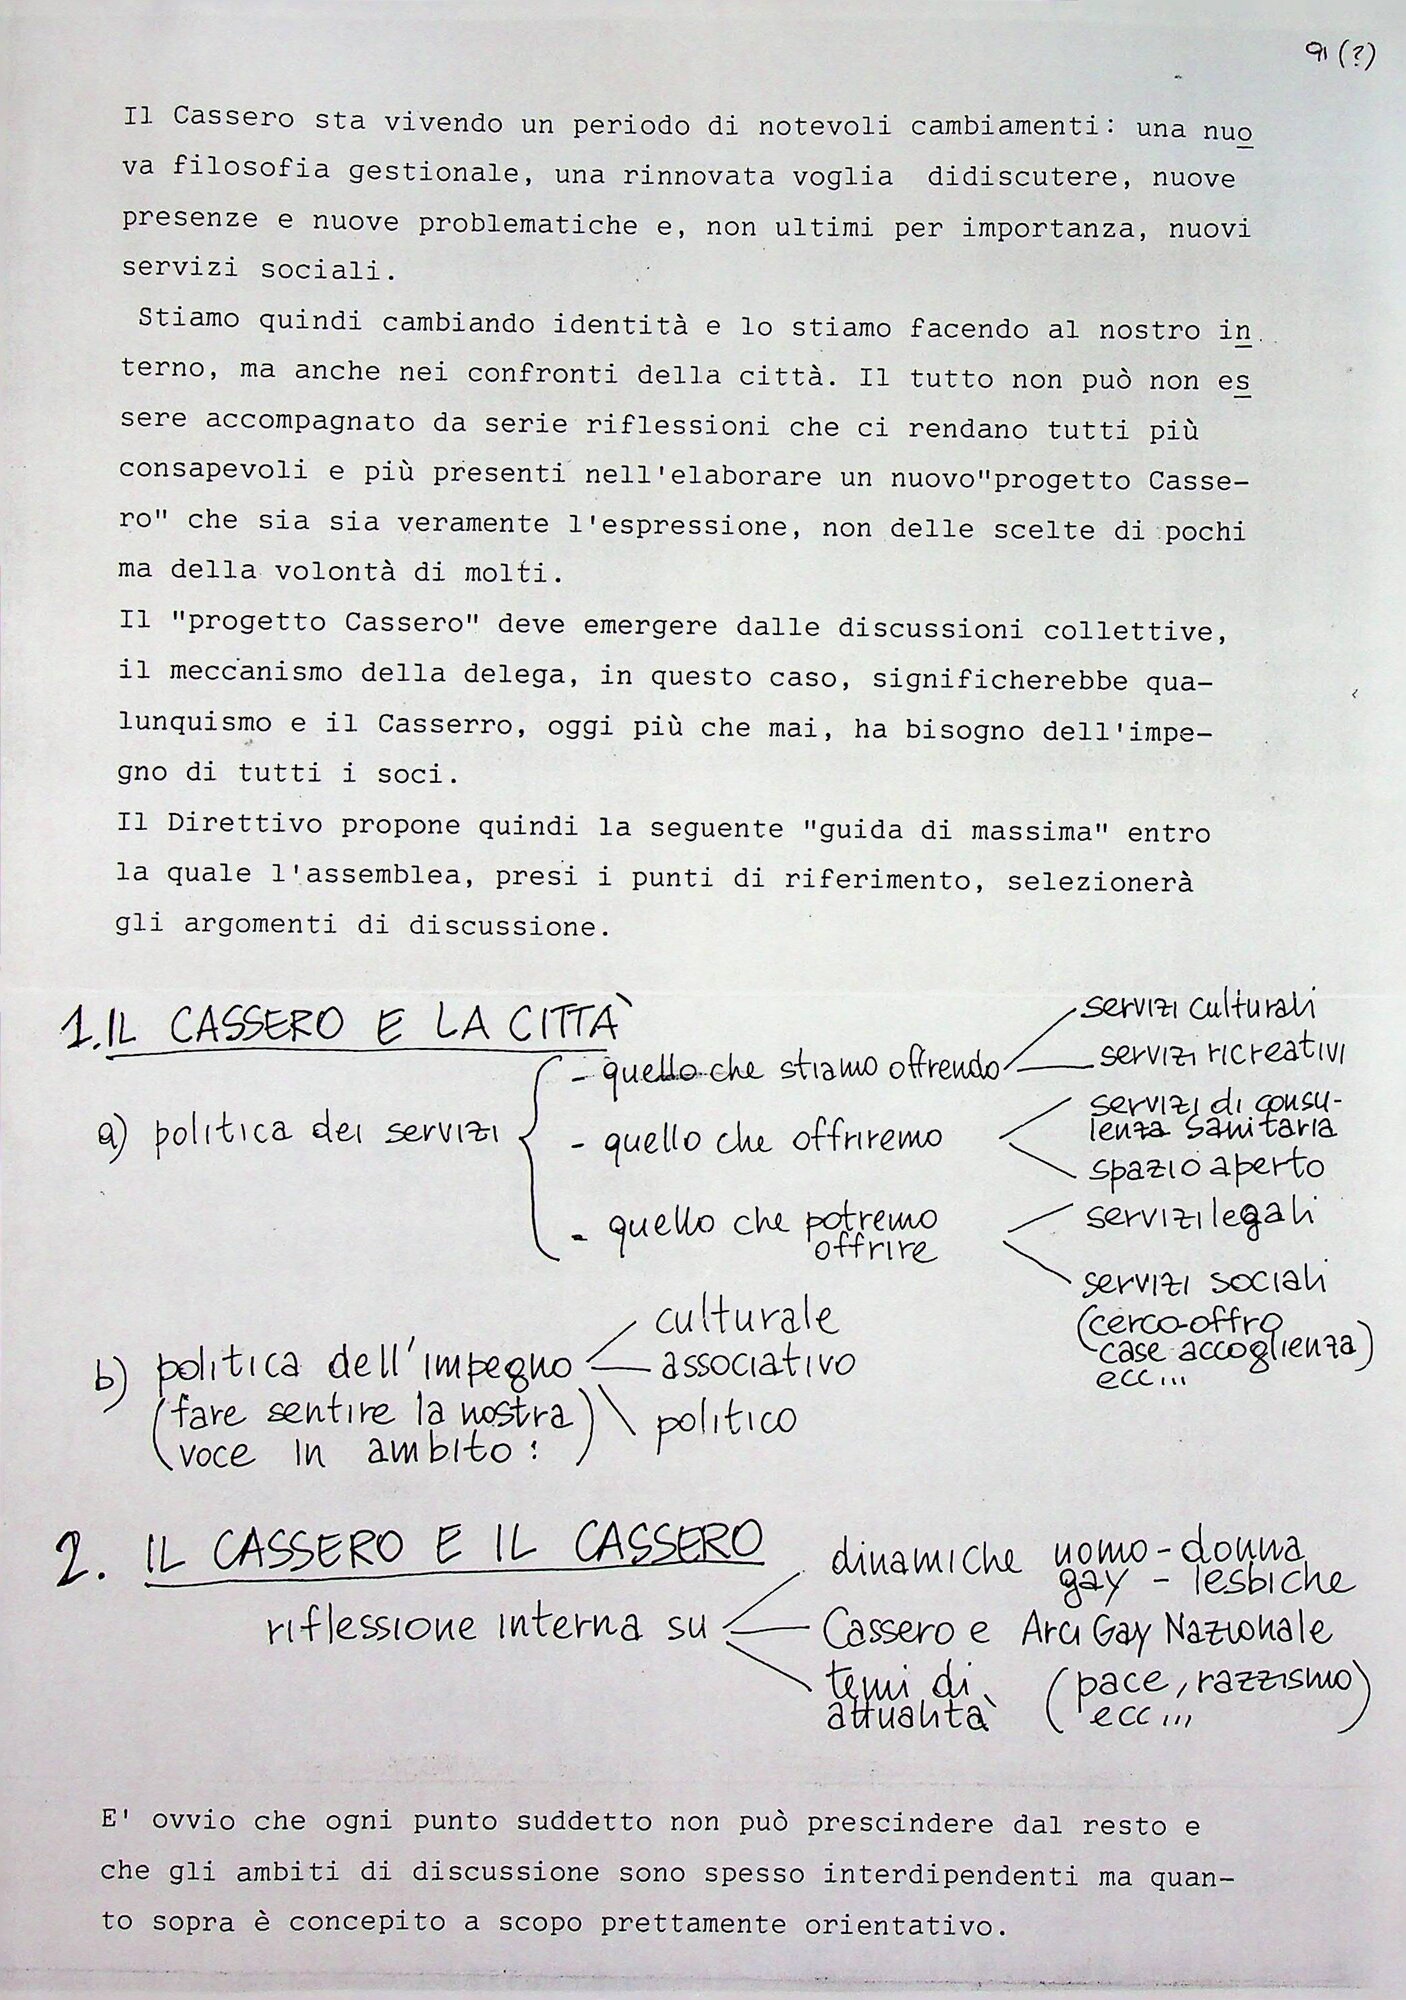 91 (?)
Il Cassero sta vivendo un periodo di notevoli cambiamenti: una nuo
va filosofia gestionale, una rinnovata voglia  didiscutere, nuove
presenze e nuove problematiche e, non ultimi per importanza, nuovi
servizi sociali.
Stiamo quindi cambiando identità e lo stiamo facendo al nostro in
terno, ma anche nei confronti della città. Il tutto non può non es
sere accompagnato da serie riflessioni che ci rendano tutti più
consapevoli e più presenti nell'elaborare un nuovo"progetto Casse-
ro" che sia sia veramente l'espressione, non delle scelte di pochi
ma della volontà di molti.
Il "progetto Cassero" deve emergere dalle discussioni collettive,
il meccanismo della delega, in questo caso, significherebbe qua-
lunquismo e il Casserro, oggi più che mai, ha bisogno dell'impe-
gno di tutti i soci.
Il Direttivo propone quindi la seguente "guida di massima" entro
la quale l'assemblea, presi i punti di riferimento, selezionerà
gli argomenti di discussione.
1. IL CASSERO E LA CITTÀ
a) politica dei servizi
- quello che stiamo offrendo
servizi culturali
servizi ricreativi
- quello che offriremo
servizi di consu-
lenza sanitaria
spazio aperto
- quello che potremo
offrire
servizi legali
servizi sociali
(cerco-offro
case accoglienza)
ecc...
b) politica dell'impegno
(fare sentire la nostra
voce in ambito:)
culturale
associativo
politico
2. IL CASSERO E IL CASSERO
riflessione interna su
dinamiche uomo-donna
gay - lesbiche
Cassero e Arci Gay Nazionale
temi di
attualità
(pace, razzismo
ecc...)
E' ovvio che ogni punto suddetto non può prescindere dal resto e
che gli ambiti di discussione sono spesso interdipendenti ma quan-
to sopra è concepito a scopo prettamente orientativo.